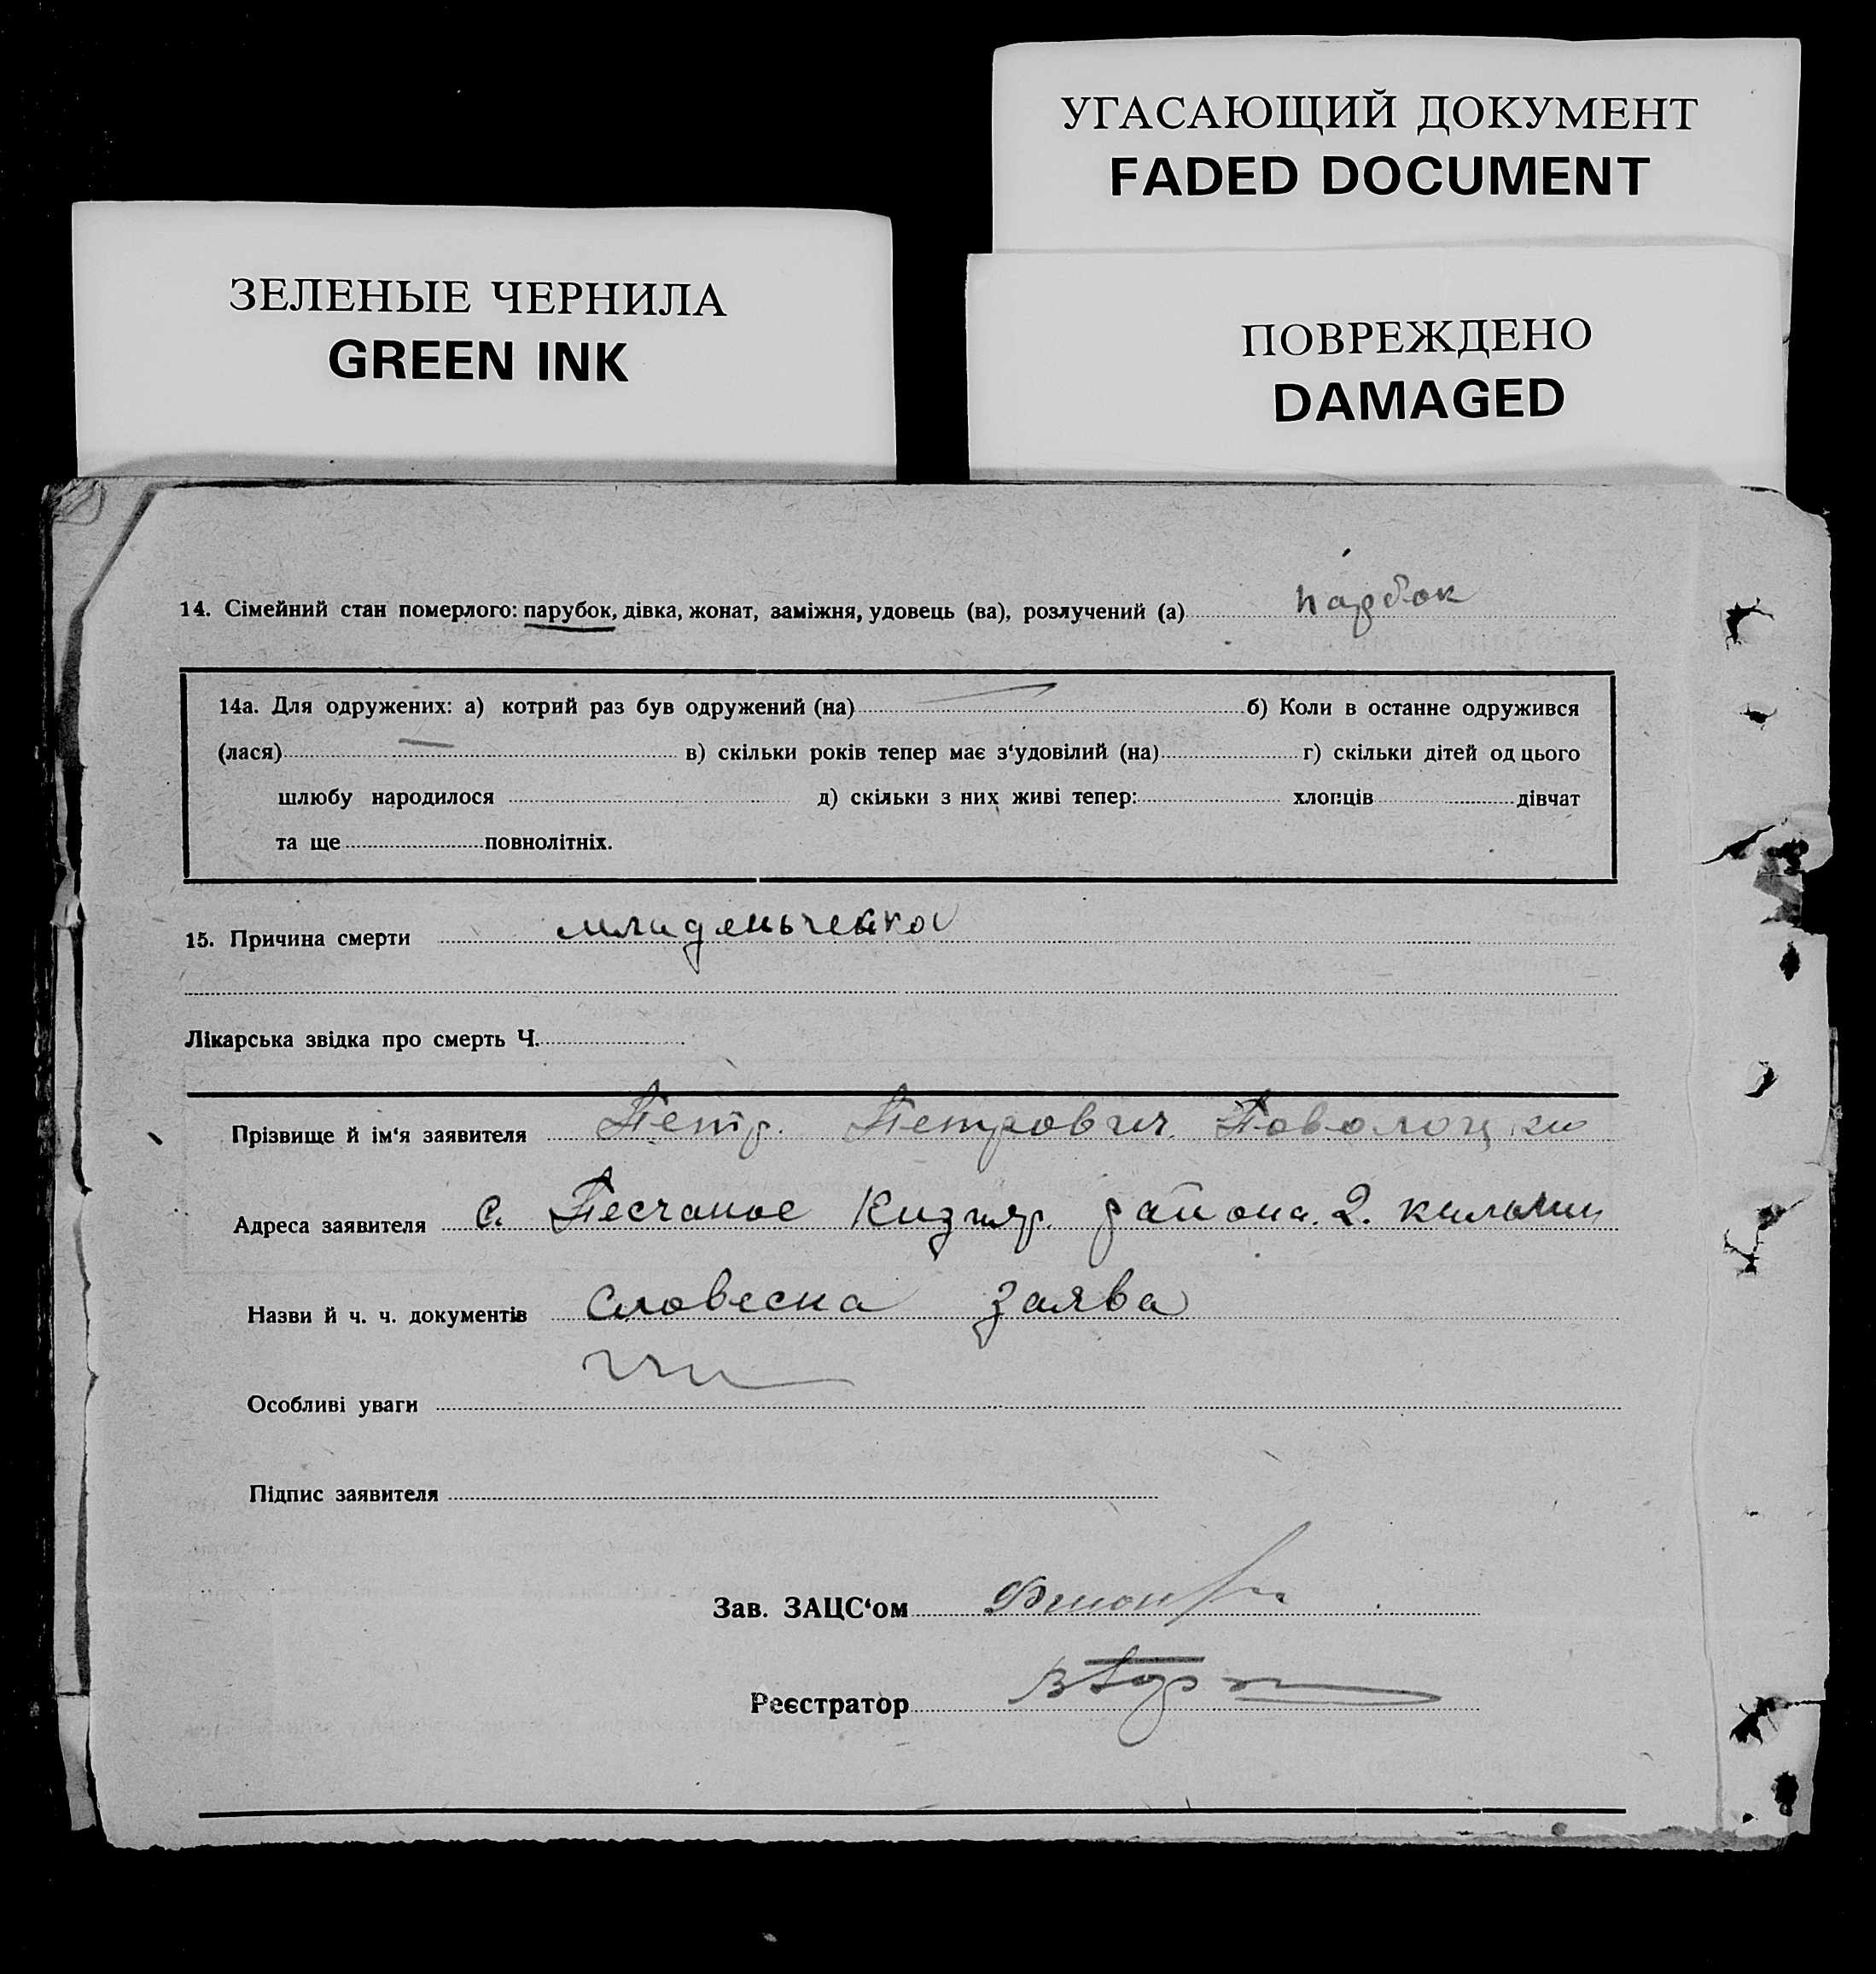 УГАСАЮЩИЙ ДОКУМЕНТ
FADED DOCUMENT
ЗЕЛЕНЫЕ ЧЕРНИЛА
GREEN INK
ПОВРЕЖДЕНО
DAMAGED
14. Сімейний стан померлого: парубок, дівка, жонат, заміжня, удовець (ва), розлучений (а) парбок
14а. Для одружених: а) котрий раз був одружений (на) б) Коли в останне одружився
(лася) в) скільки років тепер має з‘удовілий (на) г) скільки дітей од цього
шлюбу народилося д) скільки з них живі тепер: хлопців дівчат
та ще повнолітніх.
15. Причина смерти
Лікарська звідка про смерть Ч.
Прізвище й ім‘я заявителя Петр. Петрович
Адреса заявителя с. Песчаное района. 2.
Назви й ч. ч. документів Словесна заява
Особливі уваги
Підпис заявителя
Зав. ЗАЦС‘ом
Реєстратор